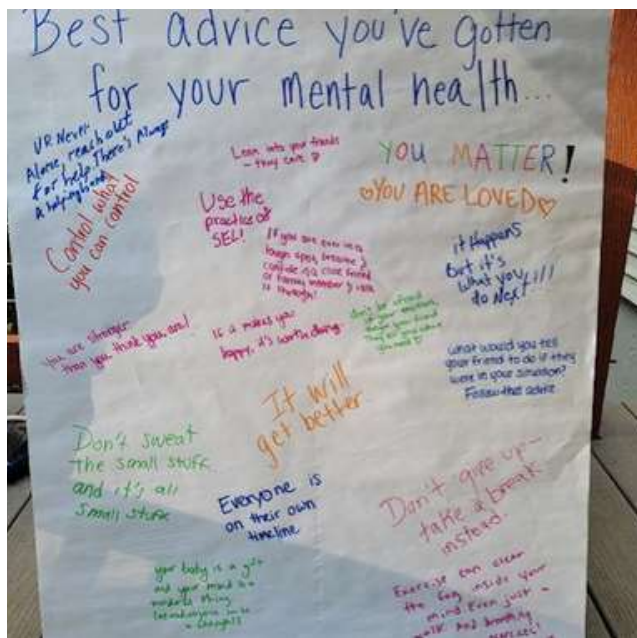 Best advice you've gotten
for your mental health...
U R Never
Alone, reach out
for help There's Always
A helping hand
Control what
you can control
Lean into your friends
- they care
Use the
practice of
SEL!
YOU MATTER!
♡YOU ARE LOVED♡
If you are ever in a
tough spot, breathe &
confide in a close friend
or family member & talk
it through!
it Happens
But it's
What you
do Next!!!!
You are stronger
than you think you are!
If it makes you
happy, it's worth doing.
Don't be afraid
what would you tell
your friend to do if they
were in your situation?
Follow that advice
It will
get better
Don't sweat
the small stuff
and it's all
small stuff
Everyone is
on their own
timeline
Don't give up-
take a break
instead!
your body is a gift
and your mind is a
Exercise can clear
the fog inside your
mind. Even just a
walk And breathing